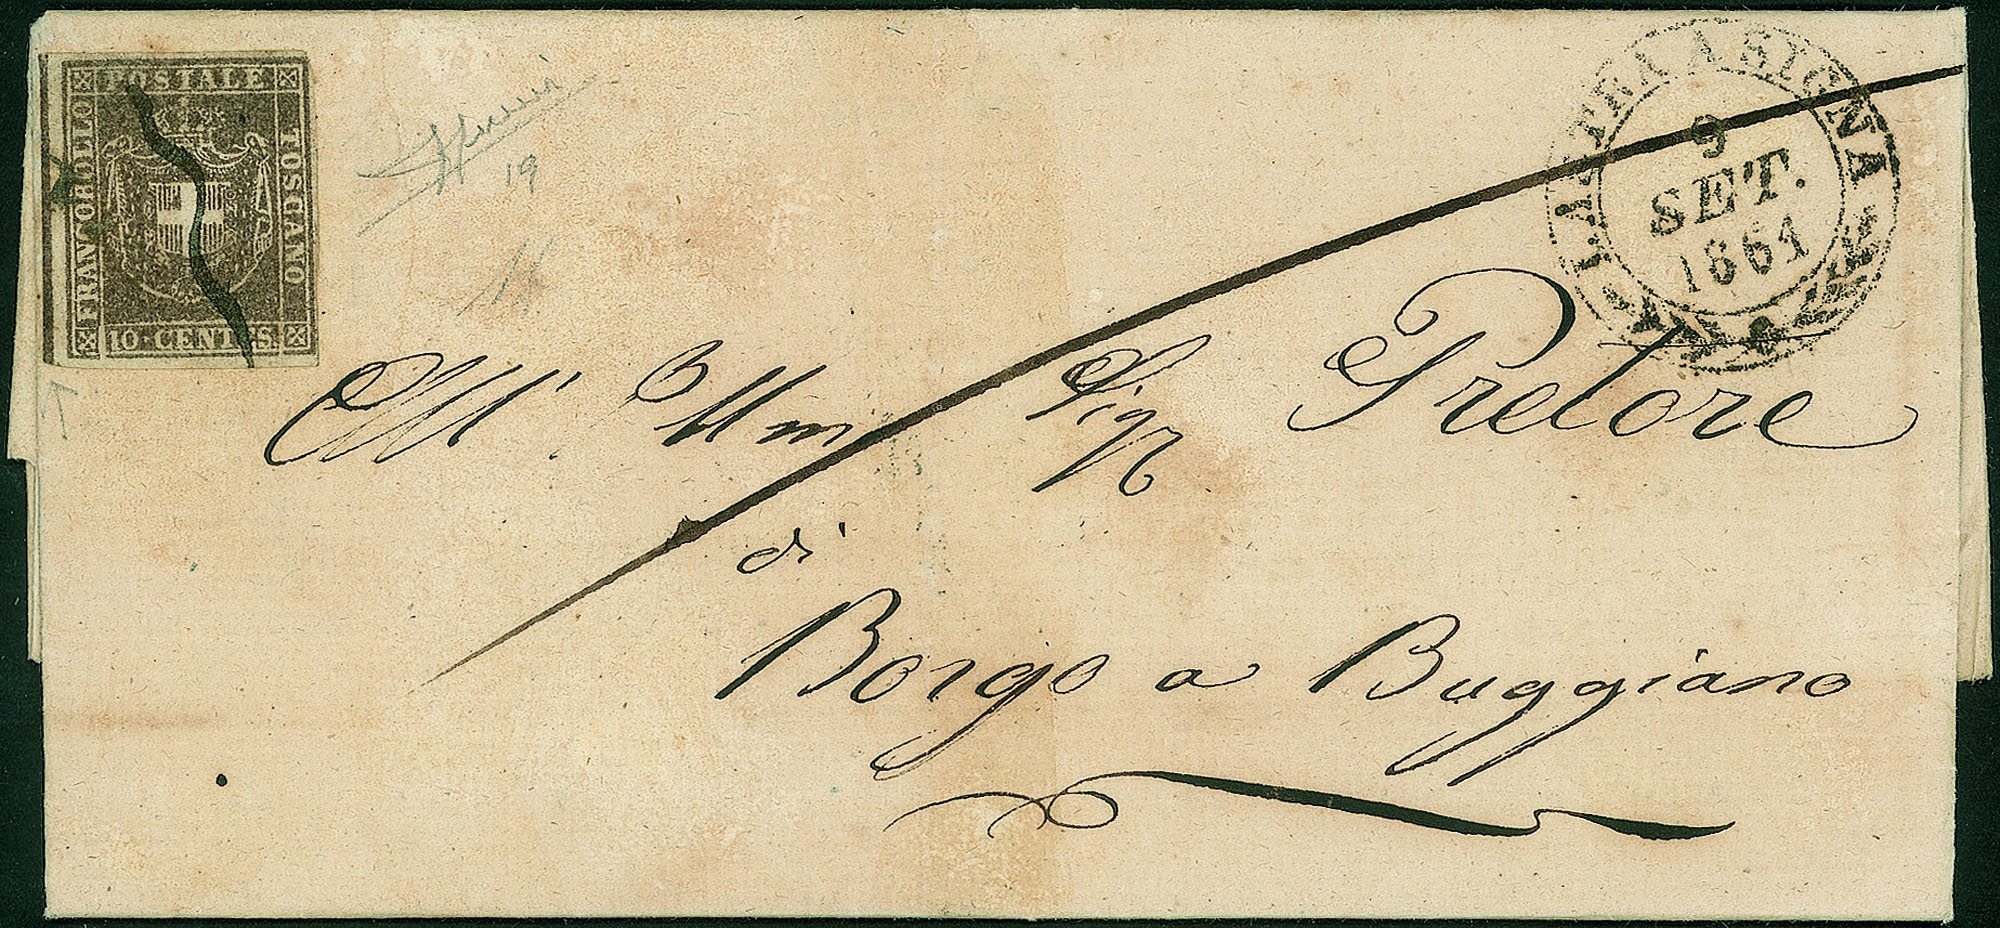 POSTALE
FRANCOBOLLO
TOSCANO
10 CENTES.
19
LASTRA A SIGNA
9
SET.
1861
All' Illm Sigr Pretore
di
Borgo a Buggiano